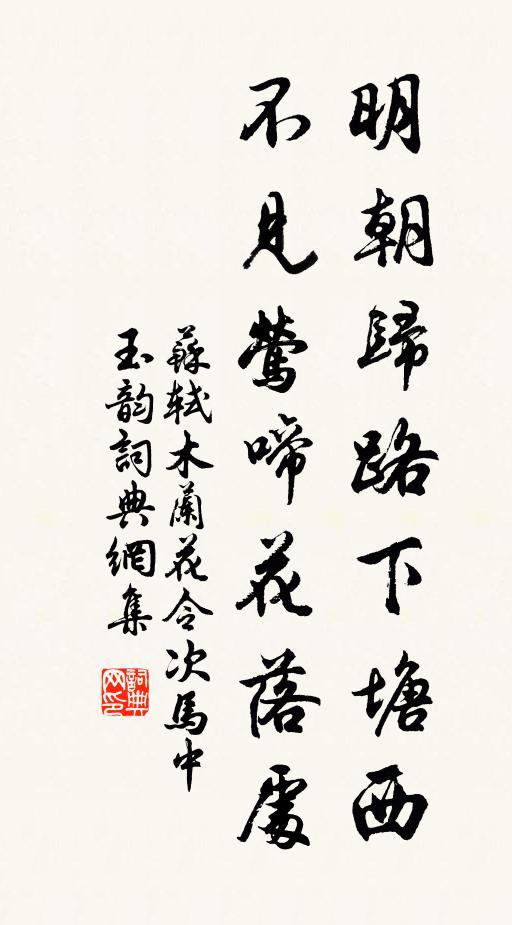 明朝歸路下塘西
不見鶯啼花落處
蘇軾木蘭花令次馬中
玉韵詞典網集
詞典网印